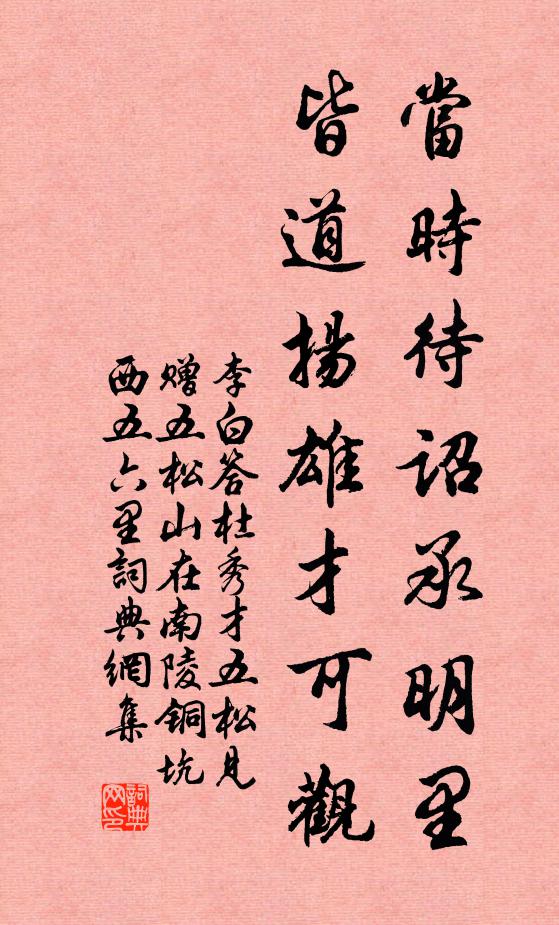 當時待詔承明里
皆道揚雄才可觀
李白答杜秀才五松見
赠五松山在南陵铜坑
西五六里詞典網集
詞典网印